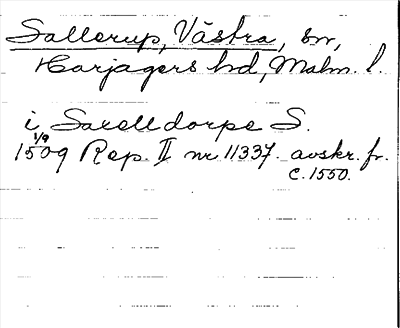 Sallerup, Västra, sn,
Harjagers hd, Malm. l.
i Saxelldorpe S.
1/9
1509 Rep. II nr 11337. avskr. fr.
c. 1550.